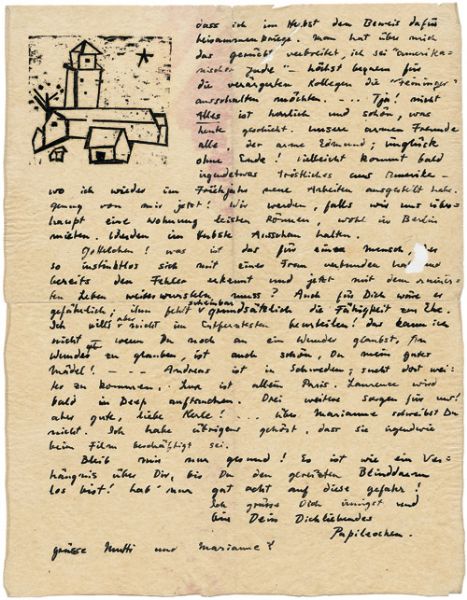 dass ich im Herbst den Beweis dafür
beisammenkriege. Man hat über mich
das gerücht verbreitet ich sei "amerika-
nischer Jude" – höchst bequem für
die verärgerten Kollegen die "Feininger"
ausschalten möchten. -... Tja! nicht
Alles ist herrlich und schön, was
heute geschieht. unsere armen Freunde
alle, der arme Edmund; unglück
ohne Ende! Vielleicht kommt bald
irgendetwas Tröstliches aus Amerika -
wo ich wieder im Frühjahr neue Arbeiten ausgestellt habe.
genug von mir jetzt! Wir werden, falls wir uns über-
haupt eine Wohnung leisten können, wohl in Berlin
mieten. Werden im Herbste Ausschau halten.
! was ist das für ein Mensch, der
so instinktlos sich mit einer Frau verbunden hat und
bereits den Fehler erkennt und jetzt mit dem ruinier-
ten Leben weiterwursteln muss? Auch für Dich wäre er
gefährlich; ihm fehlt scheinbar grundsätzlich die Fähigkeit zur Ehe.
Ich will's aber nicht im Entferntesten beurteilen! das kann ich
nicht. wenn Du noch an ein Wunder glaubst, An
Wunder zu glauben, ist auch schön, Du mein gutes
Mädel! - - - Andreas ist in Schweden; sucht dort wei-
ter zu kommen. Lux ist allein Paris. Laurence wird
bald in Deep auftauchen. Drei weitere sorgen für uns!
aber gute, liebe Kerle! ... über Marianne schreibst Du
nicht. Ich habe übrigens gehört, dass sie irgendwie
beim Film beschäftigt sei.
Bleib mir nur gesund! Es ist wie ein Ver-
hängnis über Dir, bis Du den gereizten Blinddarm
los bist! hab' nur gut acht auf diese gefahr!
Ich grüsse Dich innigst und
bin Dein Dichliebendes
Papileochen.
grüsse Mutti und Marianne!